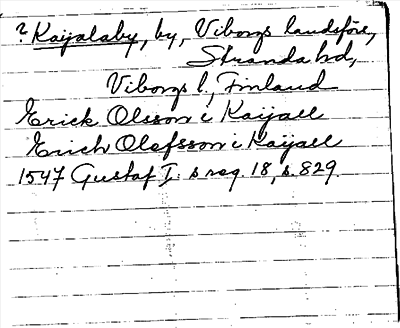 ? Kaijalaby, by, Viborgs landsförs,
Stranda hd,
Viborgs l., Finland
Erick Olsson i Kaijall
Erich Olofsson i Kaijall
1547 Gustaf I: s reg. 18, s. 829.